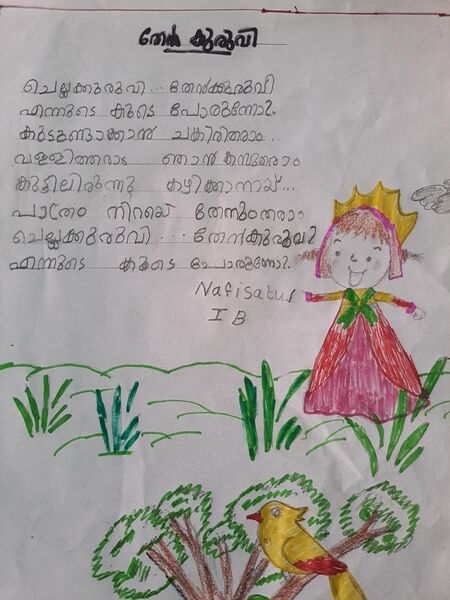 തേൻ കുരുവി
ചെല്ലക്കുരുവി... തേൻക്കുരുവി
എന്നുടെ കൂടെ പോരുന്നോ?
കൂടുണ്ടാക്കാൻ ചകിരിതരാം...
വള്ളിത്തരാം ഞാൻ കമ്പുതരാം
കൂട്ടിലിരുന്നു കഴിക്കാനായ്...
പാത്രം നിറയെ തേനുംതരാം
ചെല്ലക്കുരുവി... തേൻകുരുവി
എന്നുടെ കൂടെ പോരുന്നോ?
Nafisatul
I B